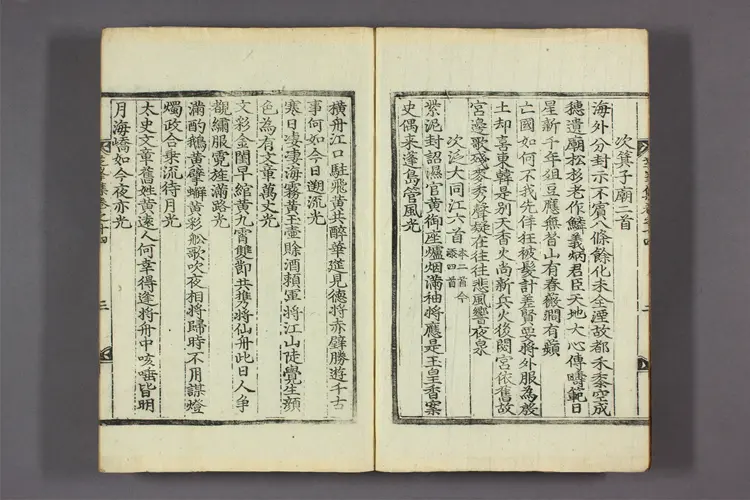 次箕子廟二首
海外分封示不賓八條餘化未全湮故都禾黍空成
德遺廟松杉老作鱗義炳君臣天地大心傳疇範日
星新千年俎豆應無替山有春薇澗有蘋
亡國如何不我先佯狂被髮計差賢聖將外服為殷
土却喜東韓是別天香火尚新兵火後閟宮依舊故
宮邊歌殘麥秀聲疑在往往悲風響夜泉
次泛大同江六首 本二首今綴四首
紫泥封詔濕官黃御座爐烟滿袖將應是玉皇香案
史偶來蓬島管風光
橫舟江口駐飛黃共醉華筵見德將赤壁勝遊千古
事何如今日遡流光
寒日凄凄海霧黃玉壺賒酒賴軍將江山徒覺生顏
色為有文章萬丈光
文彩金閨早綰黃九霄雙節共擕將仙舟此日人爭
觀繡服霓旌滿路光
滿酌鵝黃擘蠏黃彩舩歌吹夜相將歸時不用謀燈
燭政合乘流待月光
太史文章舊姓黃遠人何幸得逢將舟中咳唾皆明
月海嶠如今夜亦光